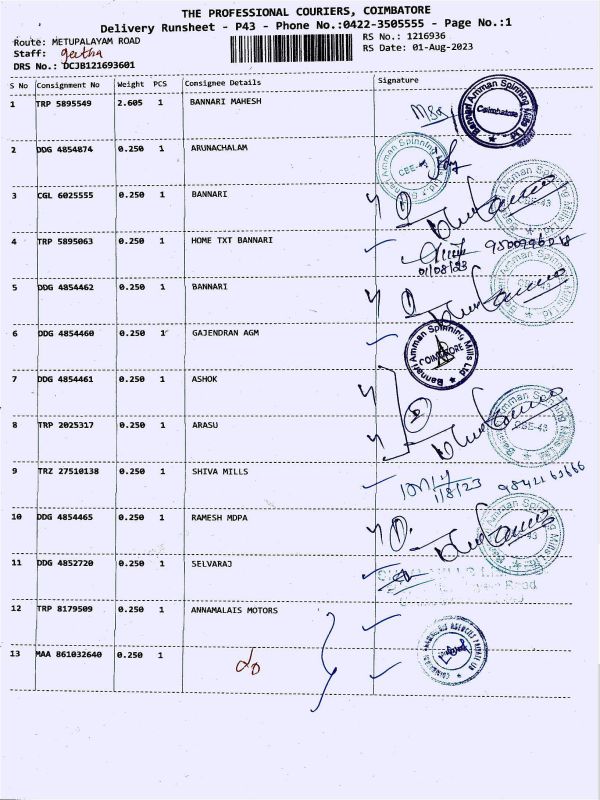 THE PROFESSIONAL COURIERS, COIMBATORE
Delivery Runsheet - P43 - Phone No.:0422-3505555 - Page No.:1
Route: METUPALAYAM ROAD
RS No.: 1216936
Staff: geetha
RS Date: 01-Aug-2023
DRS No.: DCJB121693601
S No Consignment No Weight PCS Consignee Details Signature
1 TRP 5895549 2.605 1 BANNARI MAHESH
Bannari Amman Spinning Mills Ltd
Coimbatore
2 DDG 4854874 0.250 1 ARUNACHALAM
CBE-43
3 CGL 6025555 0.250 1 BANNARI
CBE-43
4 TRP 5895063 0.250 1 HOME TXT BANNARI
01/08/23
5 DDG 4854462 0.250 1 BANNARI
6 DDG 4854460 0.250 1 GAJENDRAN AGM
Bannari Amman Spinning Mills Ltd
COIMBATORE
7 DDG 4854461 0.250 1 ASHOK
8 TRP 2025317 0.250 1 ARASU
CBE-43
9 TRZ 27510138 0.250 1 SHIVA MILLS
1/8/23
10 DDG 4854465 0.250 1 RAMESH MDPA
43
11 DDG 4852720 0.250 1 SELVARAJ
Road
12 TRP 8179509 0.250 1 ANNAMALAIS MOTORS
13 MAA 861032640 0.250 1 do